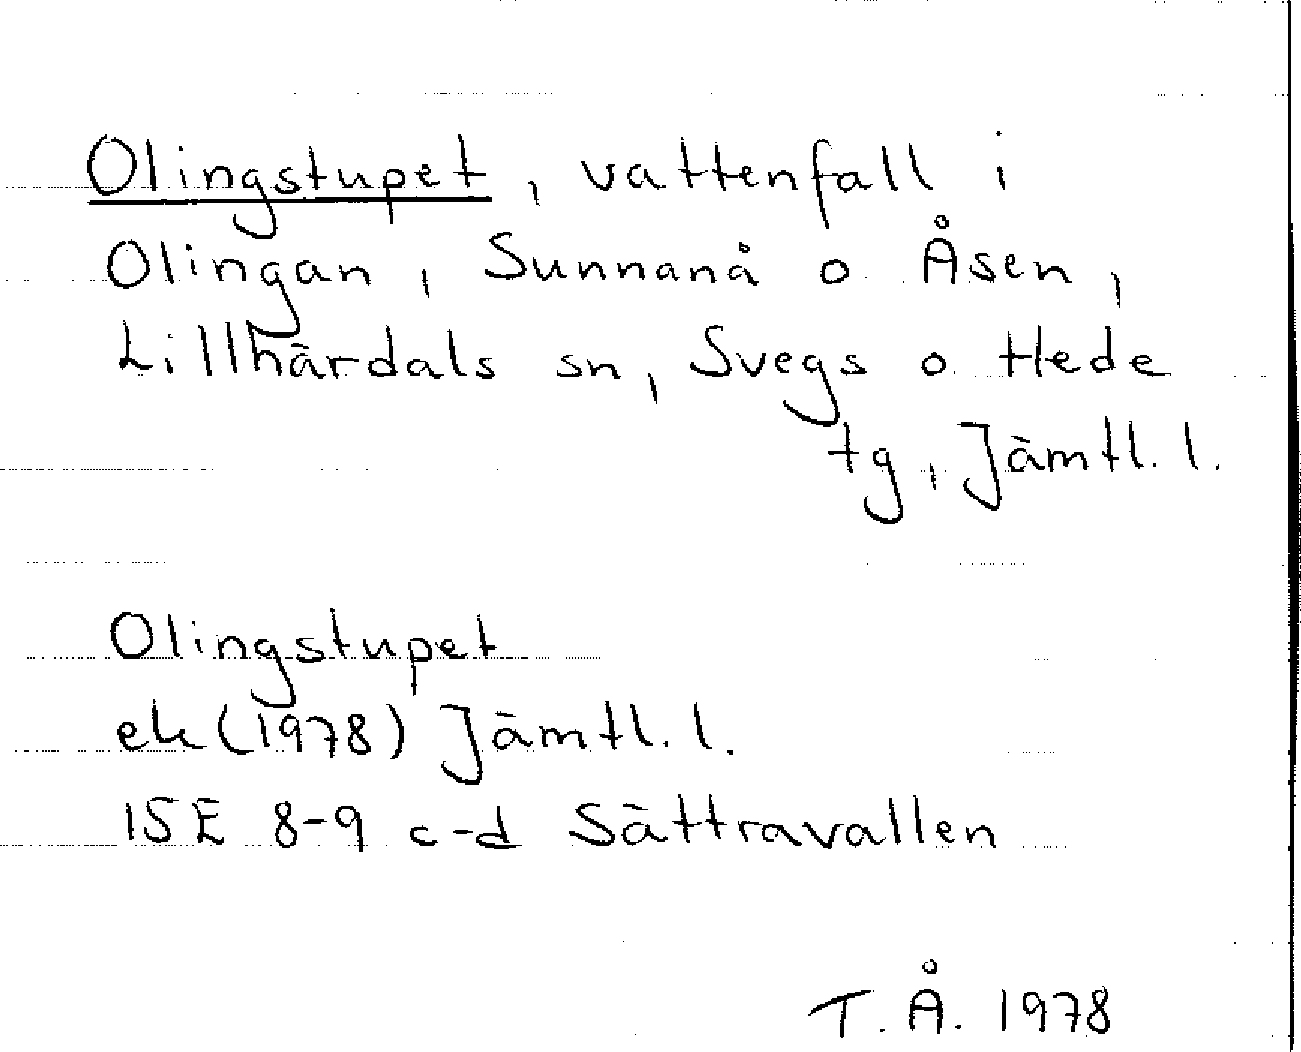 Olingstupet, vattenfall i
Olingan, Sunnanå o. Åsen,
Lillhärdals sn, Svegs o. Hede
tg, Jämtl. l.
Olingstupet
ek (1978) Jämtl. l.
15E 8-9 c-d Sättravallen
T. Å. 1978